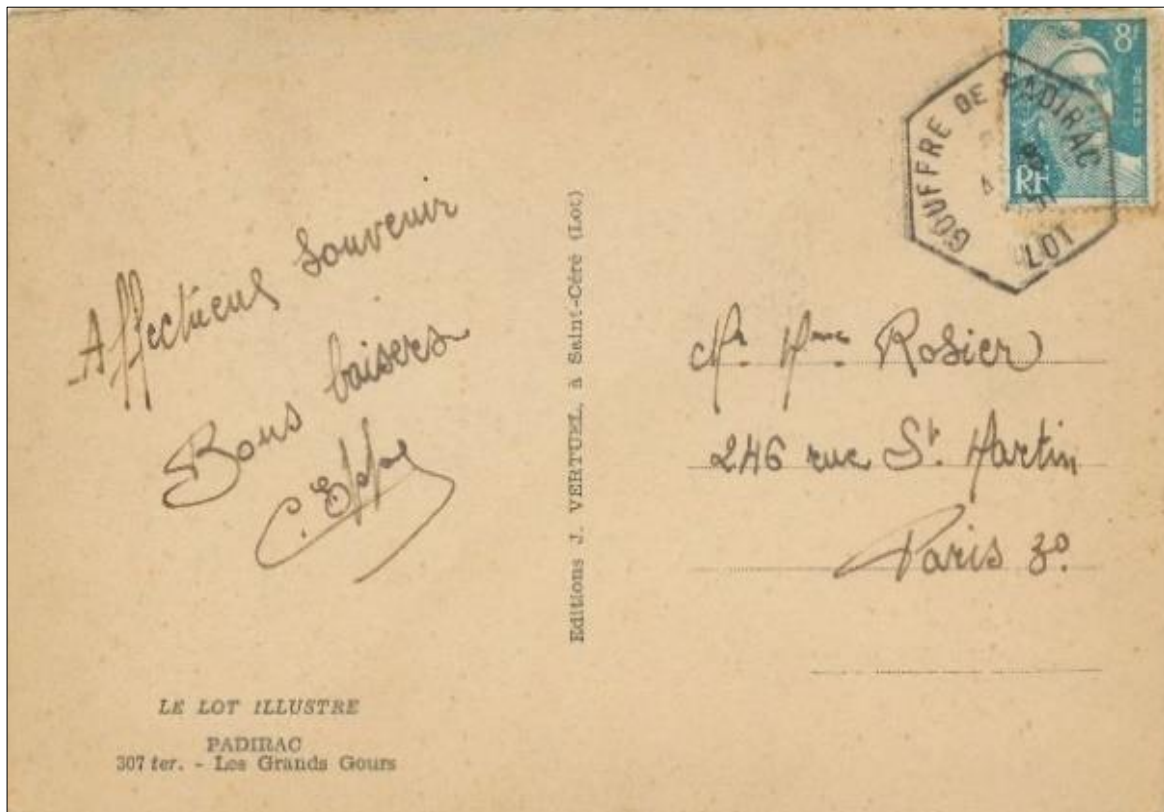 Affectueux Souvenir
Bons baisers
LE LOT ILLUSTRE
PADIRAC
307 ter. - Les Grands Gours
Editions J. VERTUEL, à Saint-Céré (Lot)
8f
RF
GOUFFRE DE PADIRAC
LOT
Mr Mme Rosier
246 rue St. Martin
Paris 3e.